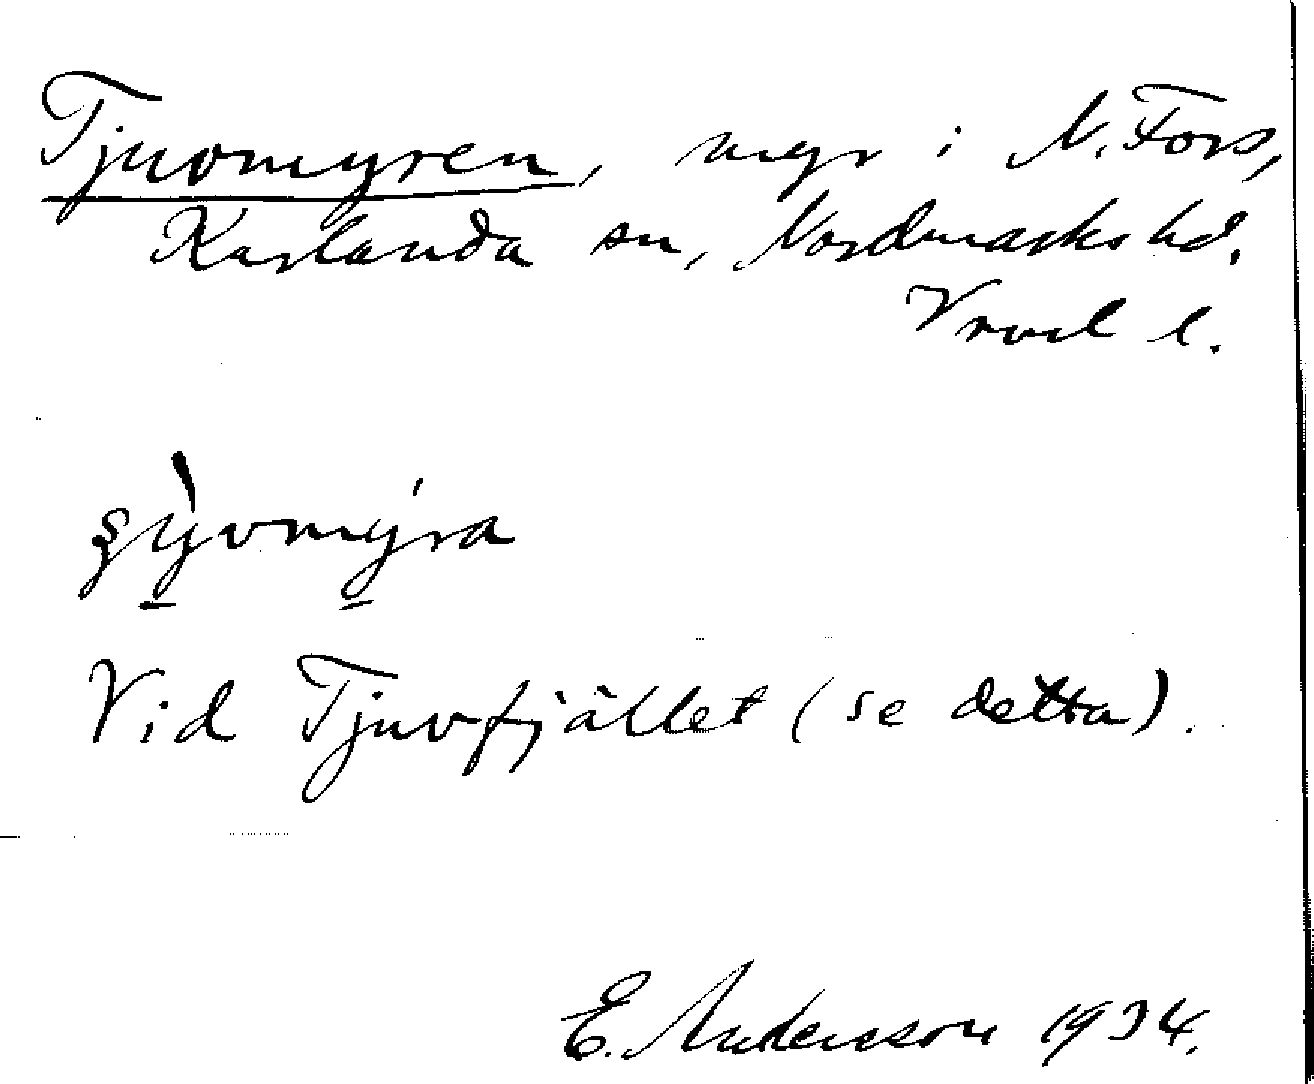 Tjuvmyren, myr i N. Fors,
Karlanda sn, Nordmarks hd.
Vrml l.
Vid Tjuvfjället (se detta).
E. Andersson 1934.